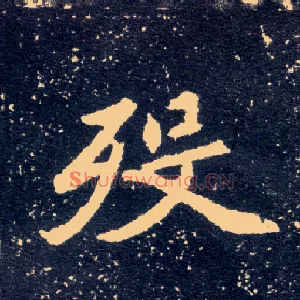 殁
Shufawang.CN